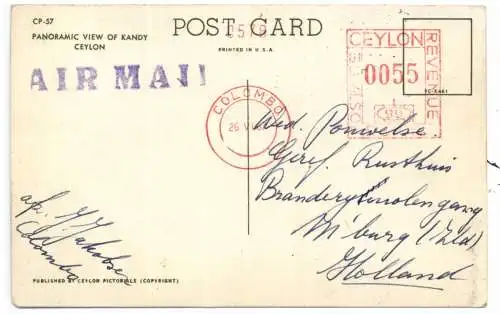 CP-57
PANORAMIC VIEW OF KANDY
CEYLON
POST CARD
PRINTED IN U.S.A.
AIR MAIL
COLOMBO
26 V
CEYLON
REVENUE
0055
Wed. Pouwelse
Geref. Rusthuis
Branderijmolengang
M'burg (Zld)
Holland
afz. J. Jakobse
Colombo
PUBLISHED BY CEYLON PICTORIALS (COPYRIGHT)